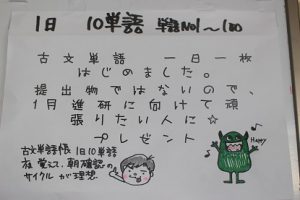 1日 10単語 単語No1～100
古文単語 一日一枚
はじめました。
提出物ではないので、
1月進研に向けて頑
張りたい人に☆
プレゼント
古文単語帳1日10単語
夜覚えて、朝確認の
サイクルが理想
Happy